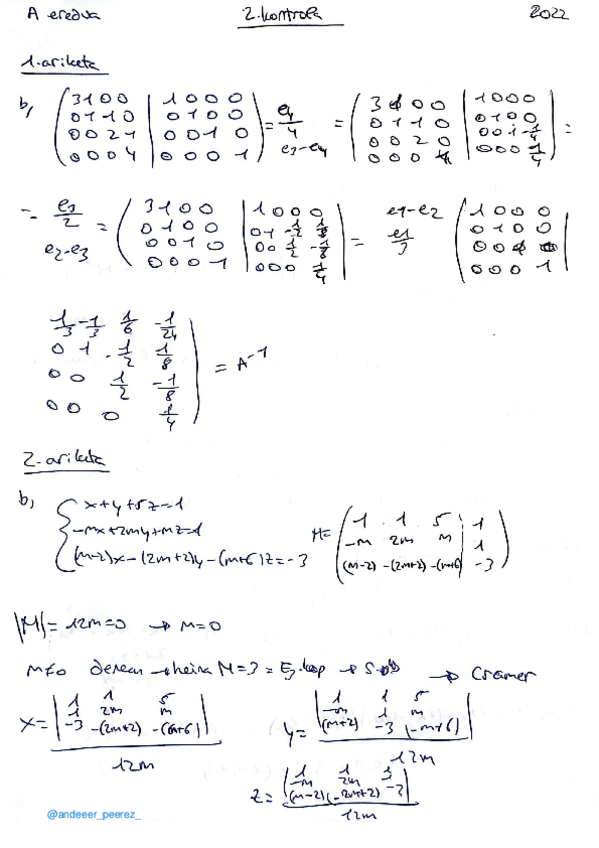 A eredua 2. kontrola 2022
1. ariketa
b, ( 3 1 0 0 | 1 0 0 0 ) = e4/4 = ( 3 1 0 0 | 1 0 0 0 ) =
0 1 1 0 | 0 1 0 0 e3-e4 0 1 1 0 | 0 1 0 0
0 0 2 1 | 0 0 1 0 0 0 2 0 | 0 0 1 -1/4
0 0 0 4 | 0 0 0 1 0 0 0 1 | 0 0 0 1/4
= e3/2 = ( 3 1 0 0 | 1 0 0 0 | = e1-e2 ( 1 0 0 0 |
e2-e3 0 1 0 0 | 0 1 -1/2 1/8 e1/3 0 1 0 0
0 0 1 0 | 0 0 1/2 -1/8 0 0
0 0 0 1 | 0 0 0 1/4 0 0 0 1
1/3 -1/3 1/6 -1/24
0 1 -1/2 1/8 = A^-1
0 0 1/2 -1/8
0 0 0 1/4
2. ariketa
b, { x+y+5z=1
-mx+2my+mz=1
(m-2)x-(2m+2)y-(m+6)z=-3
M= ( 1 1 5 | 1 )
-m 2m m | 1
(m-2) -(2m+2) -(m+6) | -3
|M|=12m=0 → m=0
m≠0 denean → heina M=3= → Cramer
x= | 1 1 5 |
1 2m m
-3 -(2m+2) -(m+6)
12m
y= | 1 1 5 |
-m 1 m
(m+2) -3 (-m+6)
12m
z= | 1 1 |
-m 2m
(m-2) (-2m+2) -3
12m
@andeeer_peerez_